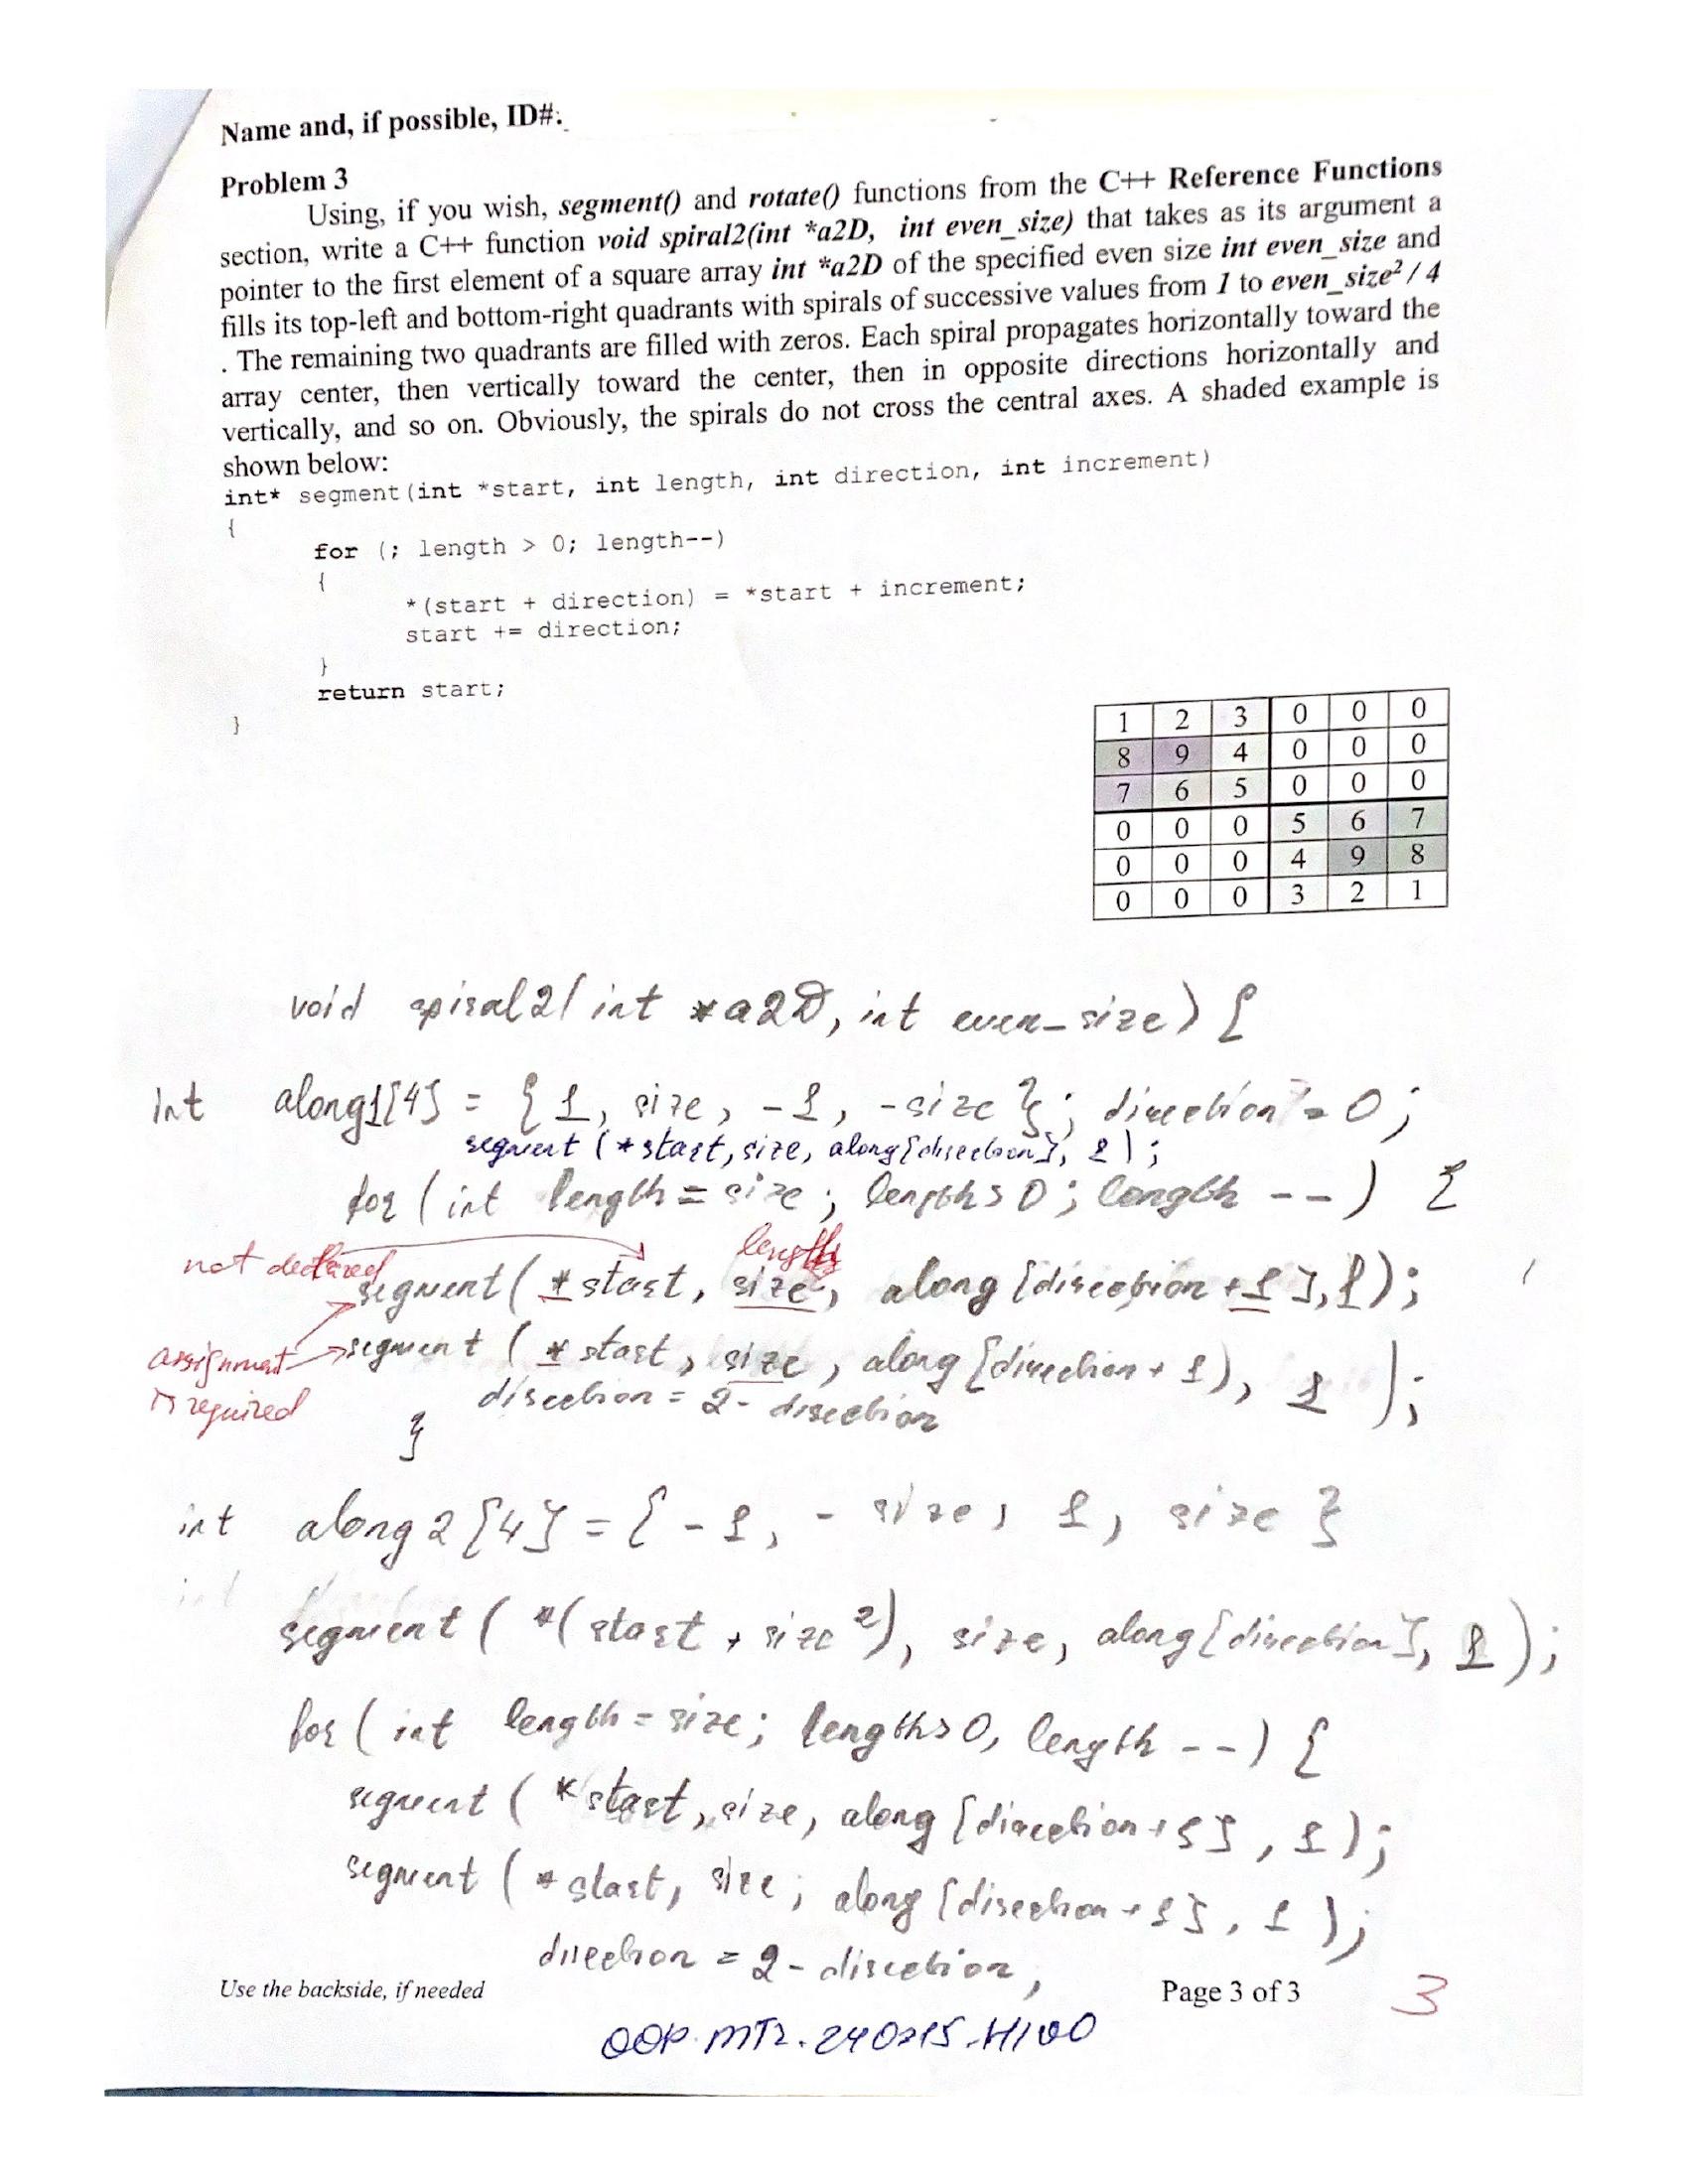 Name and, if possible, ID#:
Problem 3
Using, if you wish, segment() and rotate() functions from the C++ Reference Functions
section, write a C++ function void spiral2(int *a2D, int even_size) that takes as its argument a
pointer to the first element of a square array int *a2D of the specified even size int even_size and
fills its top-left and bottom-right quadrants with spirals of successive values from 1 to even_size² / 4
. The remaining two quadrants are filled with zeros. Each spiral propagates horizontally toward the
array center, then vertically toward the center, then in opposite directions horizontally and
vertically, and so on. Obviously, the spirals do not cross the central axes. A shaded example is
shown below:
int* segment(int *start, int length, int direction, int increment)
{
for (; length > 0; length--)
{
*(start + direction) = *start + increment;
start += direction;
}
return start;
}
1 2 3 0 0 0
8 9 4 0 0 0
7 6 5 0 0 0
0 0 0 5 6 7
0 0 0 4 9 8
0 0 0 3 2 1
void spiral2( int *a2D, int even_size) {
int along1[4] = { 1, size, -1, -size }; direction = 0;
segment (*start, size, along[direction], 1);
for (int length = size; length > 0; length --) {
not declared length
segment( *start, size, along [direction + 1], 1);
assignment is required
segment ( *start, size, along [direction + 1), 1 );
direction = 2 - direction
}
int along2 [4] = { -1, -size, 1, size }
segment ( *(start + size²), size, along[direction], 1 );
for ( int length = size; length > 0, length --) {
segment ( *start, size, along [direction + 1], 1 );
segment ( *start, size; along [direction + 1], 1 );
direction = 2 - direction,
Use the backside, if needed
Page 3 of 3
3
OOP.MT2.240215.H100